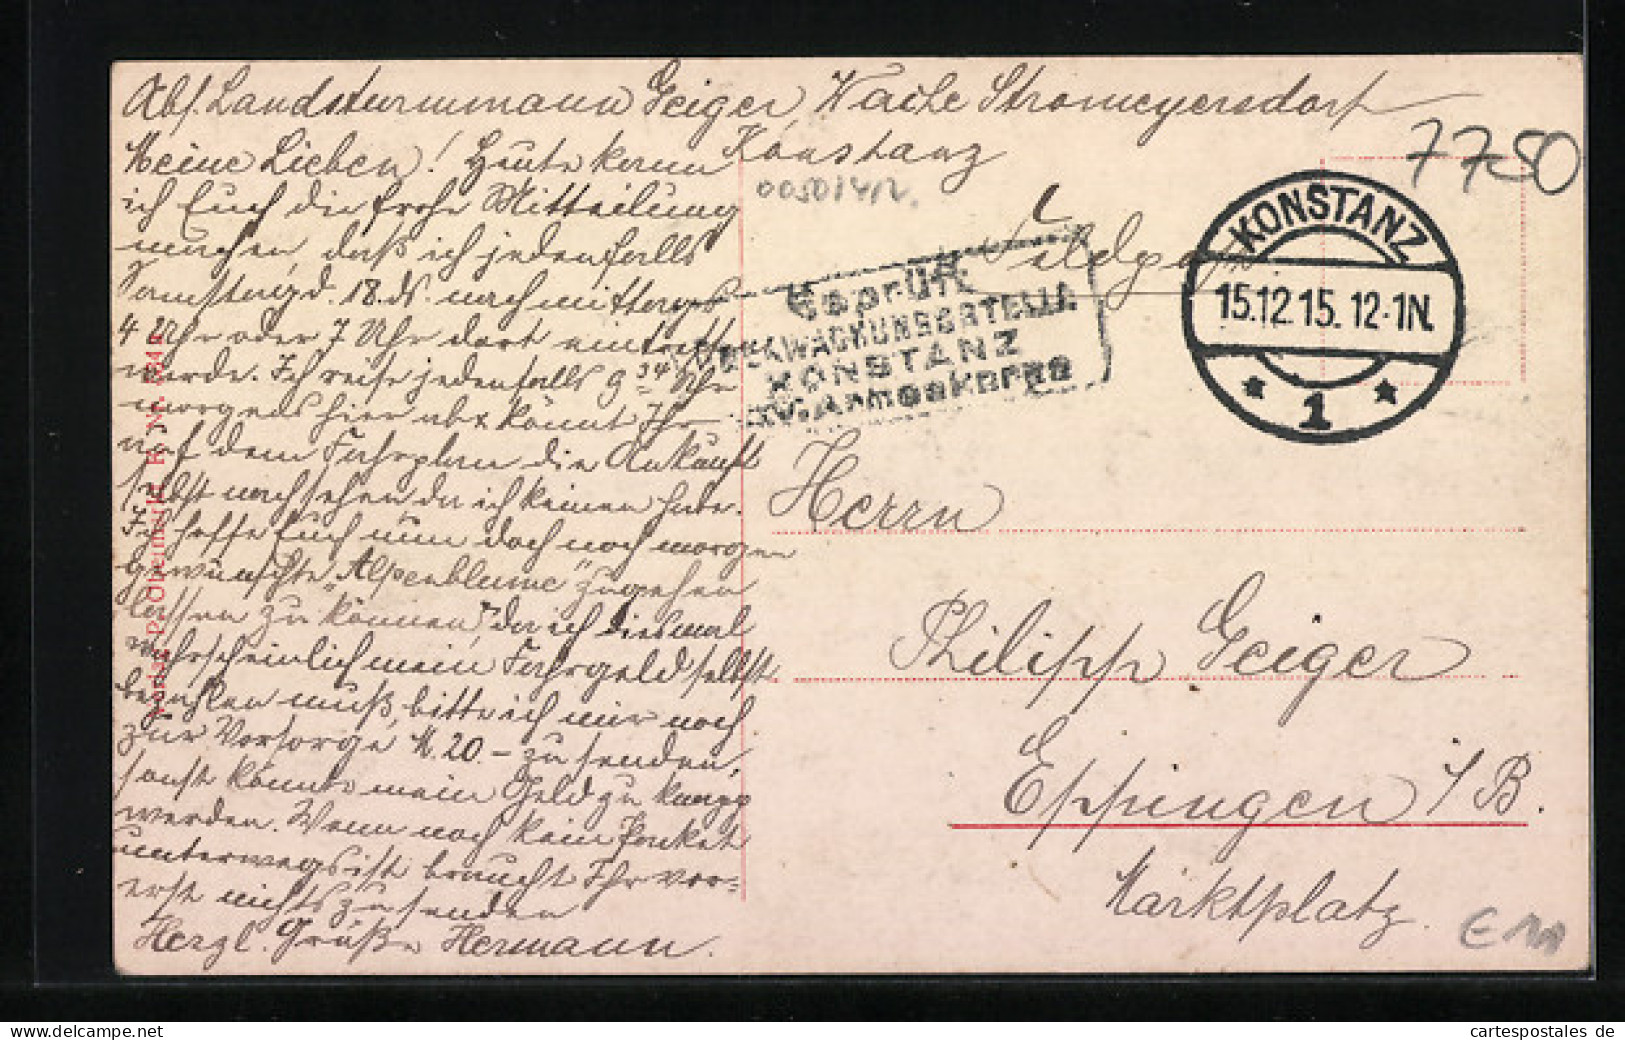 Abs. Landsturmmann Geiger, Wache Stromeyersdorf
Konstanz
Meine Lieben! Heute kann
ich Euch die frohe Mitteilung
machen, daß ich jedenfalls
Samstag, d. 18. ds. nachmittags
4 Uhr oder 7 Uhr dort eintreffen
werde. Ich reise jedenfalls 9 34 Uhr
morgens hier ab & könnt Ihr
auf dem Fahrplan die Ankunft
selbst nachsehen da ich keinen habe.
Ich hoffe Euch nun doch noch morgen
gewünschte „Alpenblume" zugehen
lassen zu können, da ich diesmal
wahrscheinlich mein Fahrgeld selbst
bezahlen muß, bitte ich mir noch
zur Vorsorge M. 20.- zu senden,
sonst könnte mein Geld zu knapp
werden. Wenn noch kein Paket
unterwegs ist braucht Ihr vor=
erst nichts zu senden
Herzl. Grüße Hermann.
7750
0050141R.
Feldpost
Geprüft
ÜBERWACHUNGSSTELLE
KONSTANZ
XIV. Armeekorps
KONSTANZ
15.12.15. 12-1N.
* 1 *
Herrn
Philipp Geiger
Eppingen i/B.
Marktplatz.
Verlag P. Obermark, K. Nr.
cartespostales de